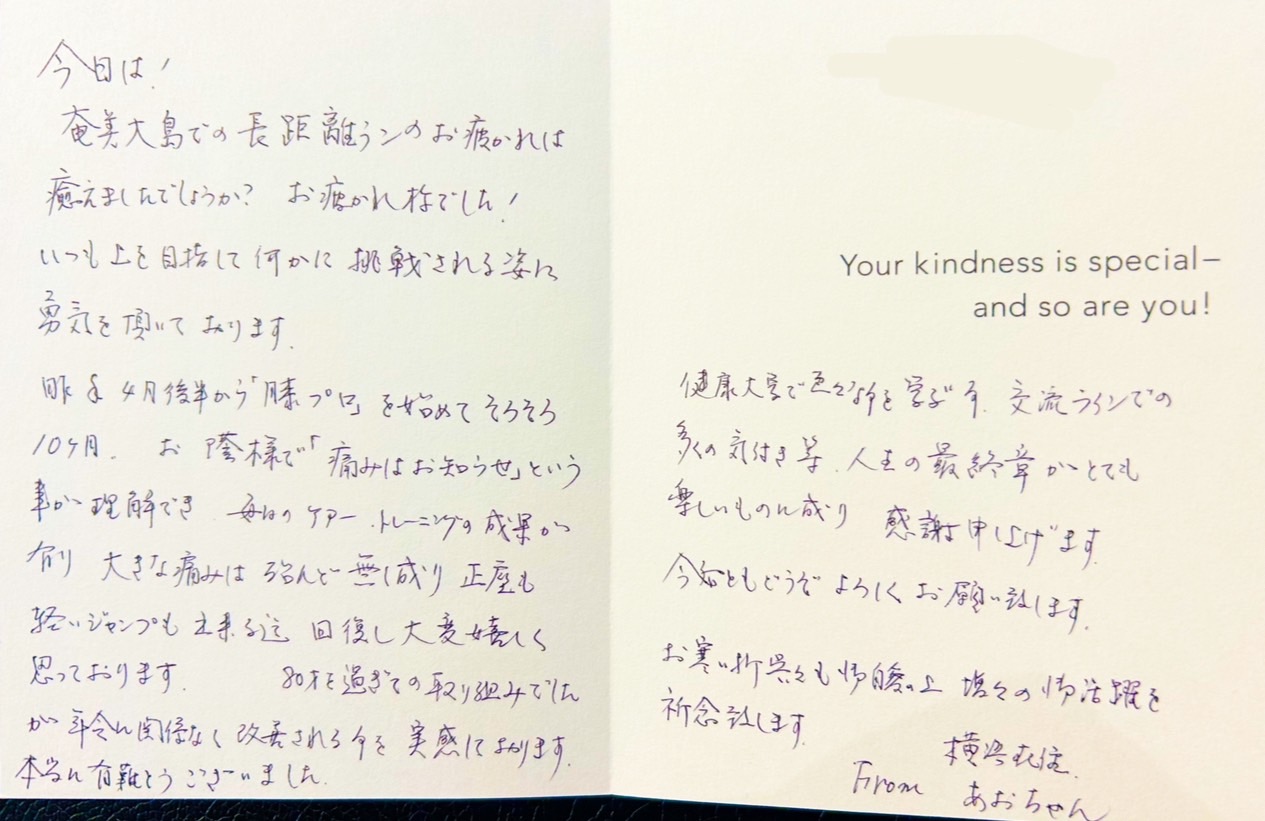 今日は!
奄美大島での長距離ランのお疲かれは
癒えましたでしょうか? お疲かれ様でした!
いつも上を目指して何かに挑戦される姿に
勇気を頂いております.
昨年4月後半から「膝プロ」を始めてそろそろ
10ヶ月. お蔭様で「痛みはお知らせ」という
事が理解でき 毎日のケアー.トレーニングの成果が
有り 大きな痛みは殆んど無し成り 正座も
軽いジャンプも出来る迄 回復し大変嬉しく
思っております. 80才を過ぎての取り組みでした
が年令に関係なく改善される事を実感しております.
本当に有難とうございました.
Your kindness is special–
and so are you!
健康大学で色々な事を学ぶ事. 交流ラインでの
多くの気付き等.人生の最終章がとても
楽しいものに成り 感謝申し上げます.
今后ともどうぞよろしくお願い致します.
お寒い折呉々も御自愛の上 益々の御活躍を
祈念致します.
横浜在住.
From あおちゃん